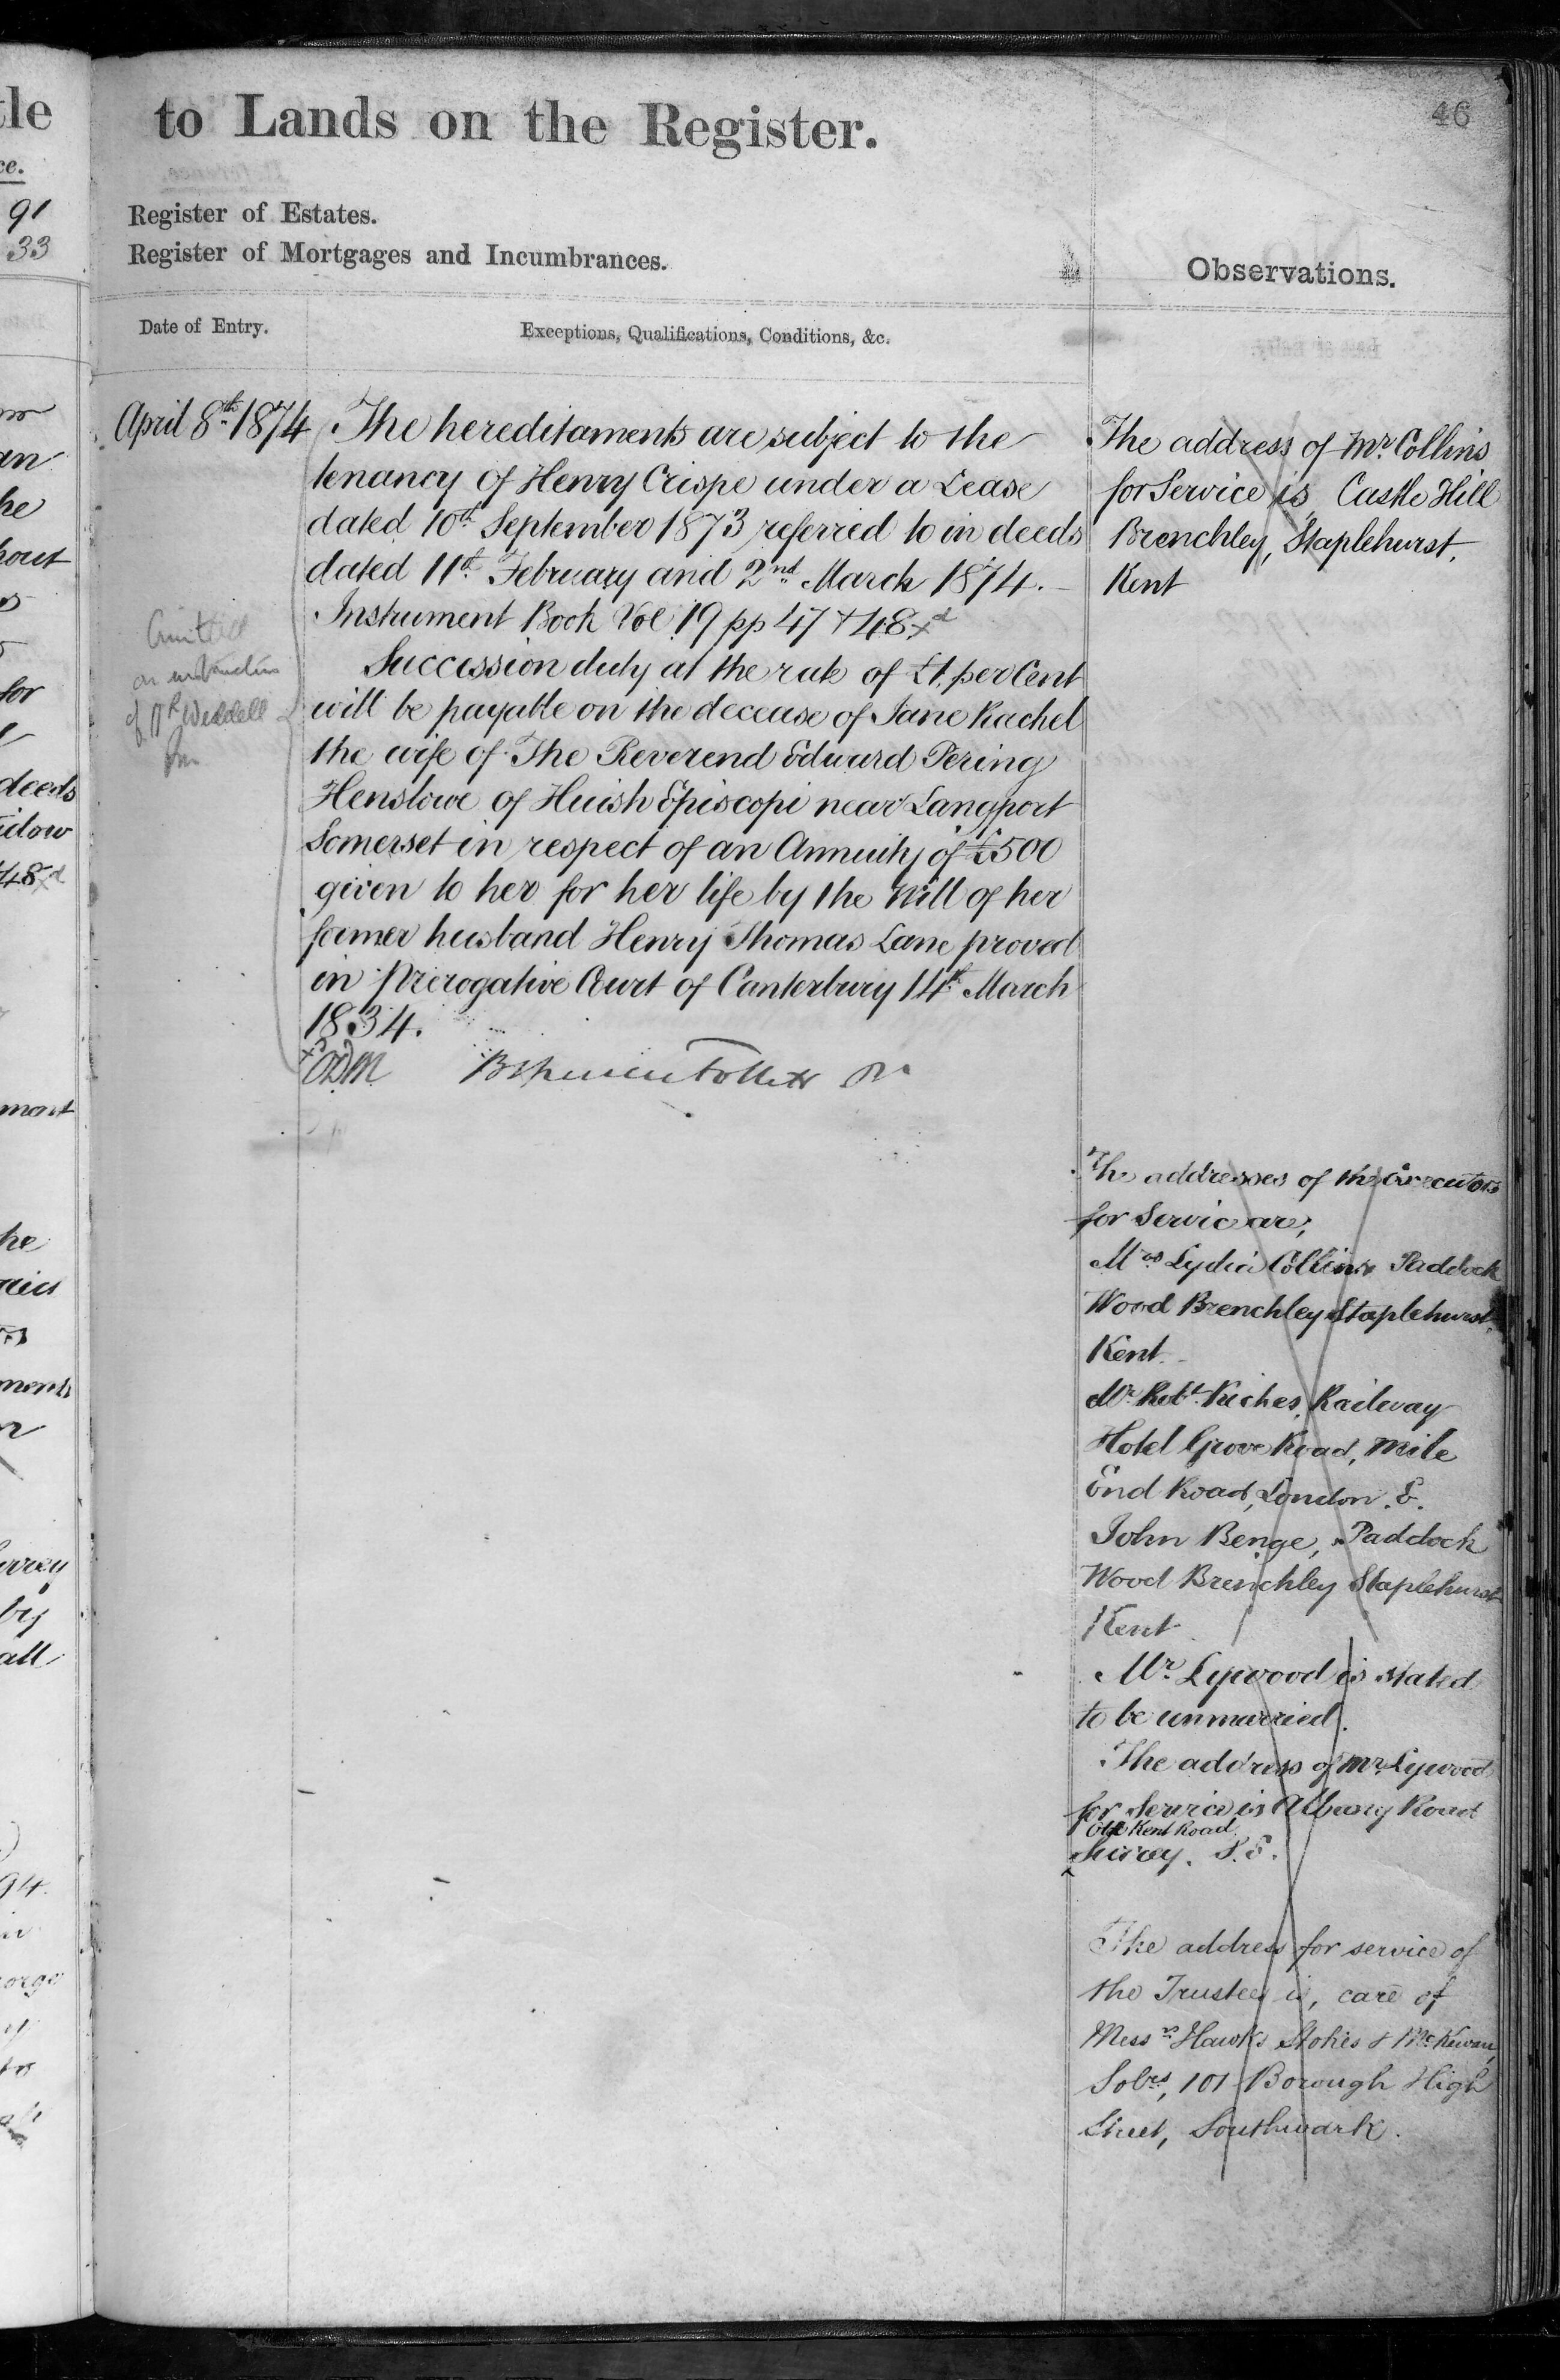 to Lands on the Register.
46
Register of Estates.
Register of Mortgages and Incumbrances.
Observations.
Date of Entry.
Exceptions, Qualifications, Conditions, &c.
April 8th 1874
The hereditaments are subject to the
tenancy of Henry Crispe under a Lease
dated 10th September 1873 referred to in deeds
dated 11th February and 2nd March 1874.
Instrument Book Vol 19 pp 47 + 48
Succession duty at the rate of £1. per Cent
will be payable on the decease of Jane Rachel
the wife of The Reverend Edward Pering
Henslowe of Huish Episcopi near Langport
Somerset in respect of an Annuity of £500
given to her for her life by the Will of her
former husband Henry Thomas Lane proved
in Prerogative Court of Canterbury 14th March
1834.
of Mr Weddell
The address of Mr. Collins
for Service is Castle Hill
Brenchley, Staplehurst,
Kent
The addresses of the Executors
for Service are,
Mrs Lydia Collins Paddock
Wood Brenchley Staplehurst
Kent.
Mr Robt. Riches, Railway
Hotel Grove Road, Mile
End Road, London. E.
John Benge, Paddock
Wood Brenchley Staplehurst
Kent
Mr. Lywood is stated
to be unmarried.
The address of Mr. Lywood
for Service is Albany Road
Old Kent Road
Surrey. S.E.
The address for service of
the Trustees is, care of
Messrs. Hawks Stokes & McKewan,
Solrs, 101 Borough High
Street, Southwark.
tle
ce.
91
33
an
he
hout
for
deeds
idow
48
ment
he
ments
by
all
94.